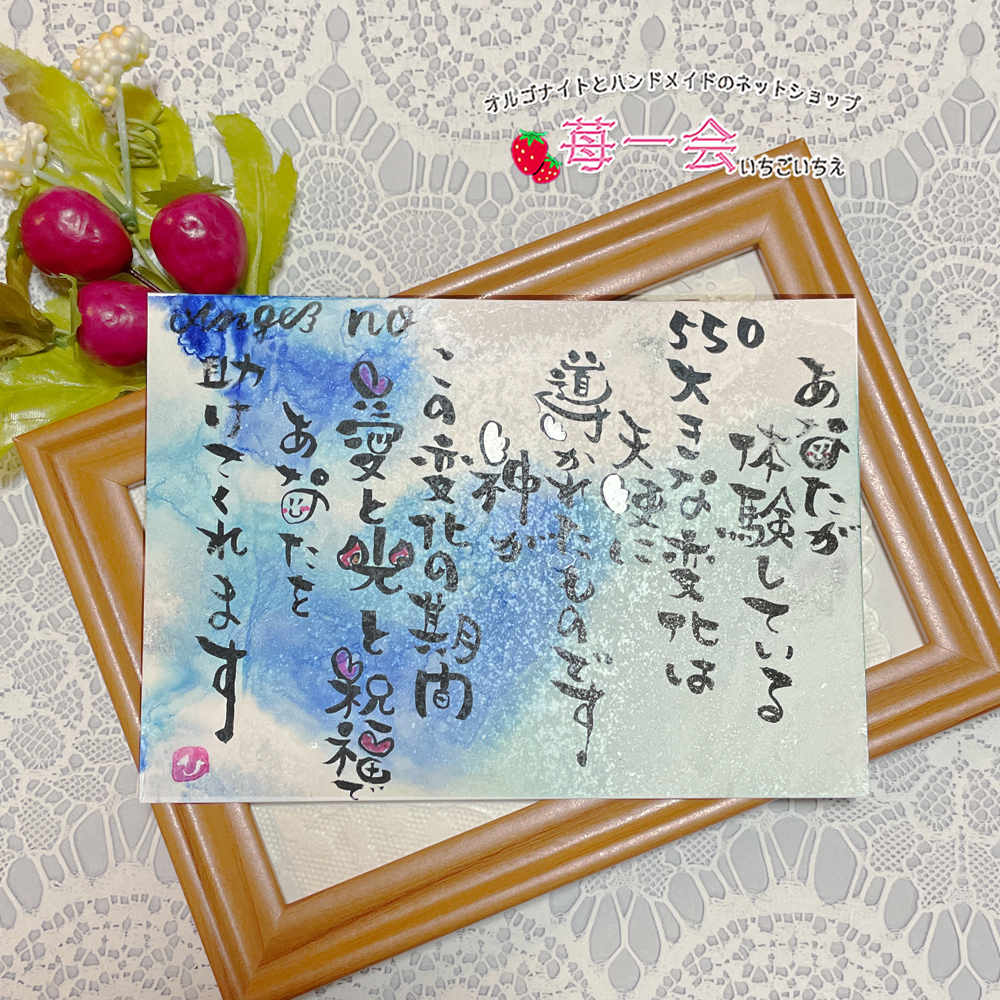 オルゴナイトとハンドメイドのネットショップ
苺一会
いちごいちえ
no 550
あなたが
体験している
大きな変化は
天使に
導かれたものです。
神が
この変化の期間
愛と光と祝福で
あなたを
助けてくれます